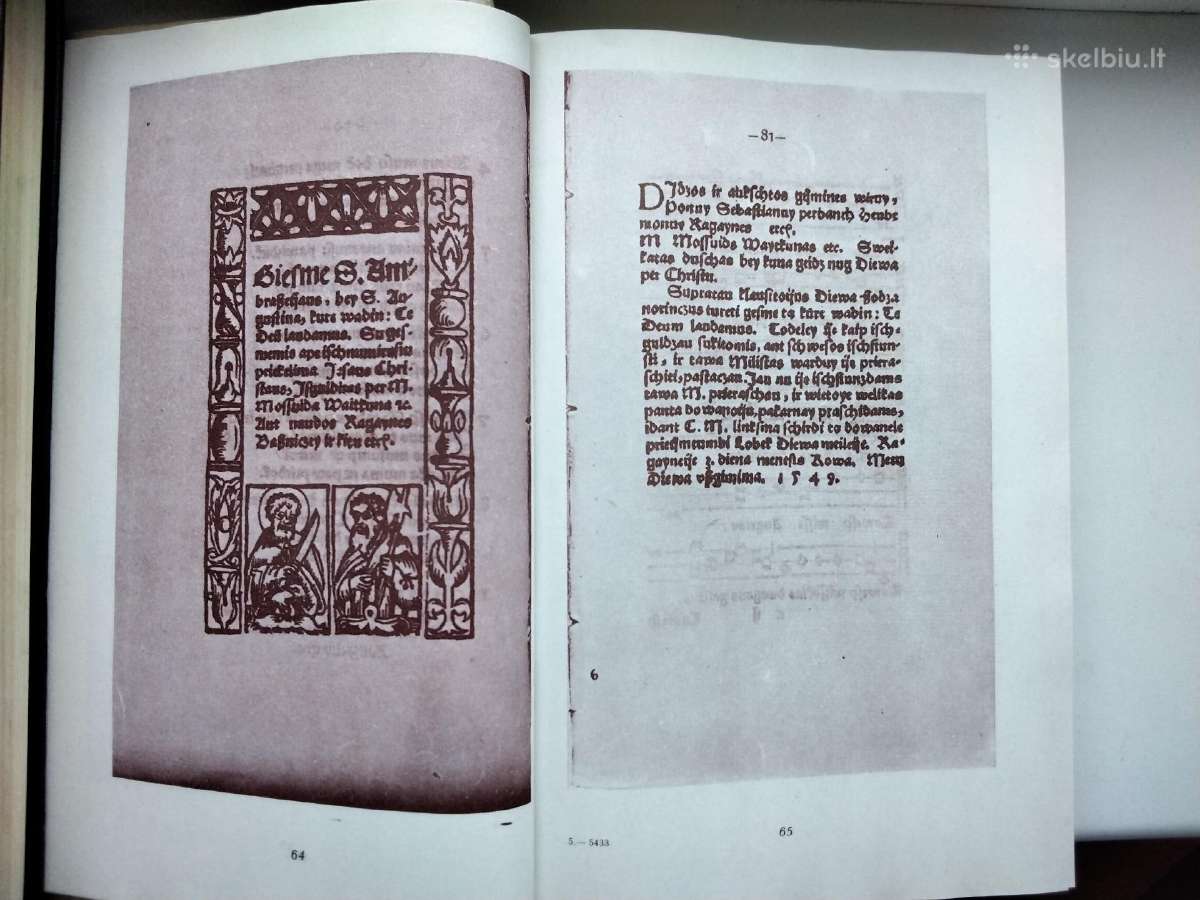 skelbiu.lt
Giesme S. Am⸗
braßeijaus, bey S. Au
gustina, kurę wadin: Te
Deū laudamus. Su ges⸗
memis ape ischnumirusiu
prickelima Jesaus Chri⸗
staus, Jsgulditas per M.
Mossuida Waitkuna ꝛc.
Ant naudos Ragaynes
Baßniczey ir kitu etcꝭ.
64
—81—
DJdzos ir aukschtos gimines wiruy,
Ponuy Sebastianuy perbanch Heube
monuy Ragaynes etcꝭ.
M Mossuids Wayckunas etc. Swei⸗
katas duschas bey kuna geidz nug Diewa
per Christu.
Supratau klausitoijus Diewa ßodza
norinczus tureti gesme ta kure wadin: Te
Deum laudamus. Todeley ije kaip isch⸗
guldzau sukitomis, ant schwesos ischstun⸗
sti, ir tawa Milistas warduy ije priera⸗
schiti, pastaczau. Jau nu ije ischstunzdams
tawa M. prieraschau, ir wietoye welikas
panta dowanoiju, pakarnay praschidams,
idant T. M. linksma schirdi to dowanele
prieihmtumbi Lobek Diewa meilehe. Ra⸗
gayneije 3. diena menesis Kowa. Metu
Diewa vßgimima. 1549.
6
5.— 5433
65